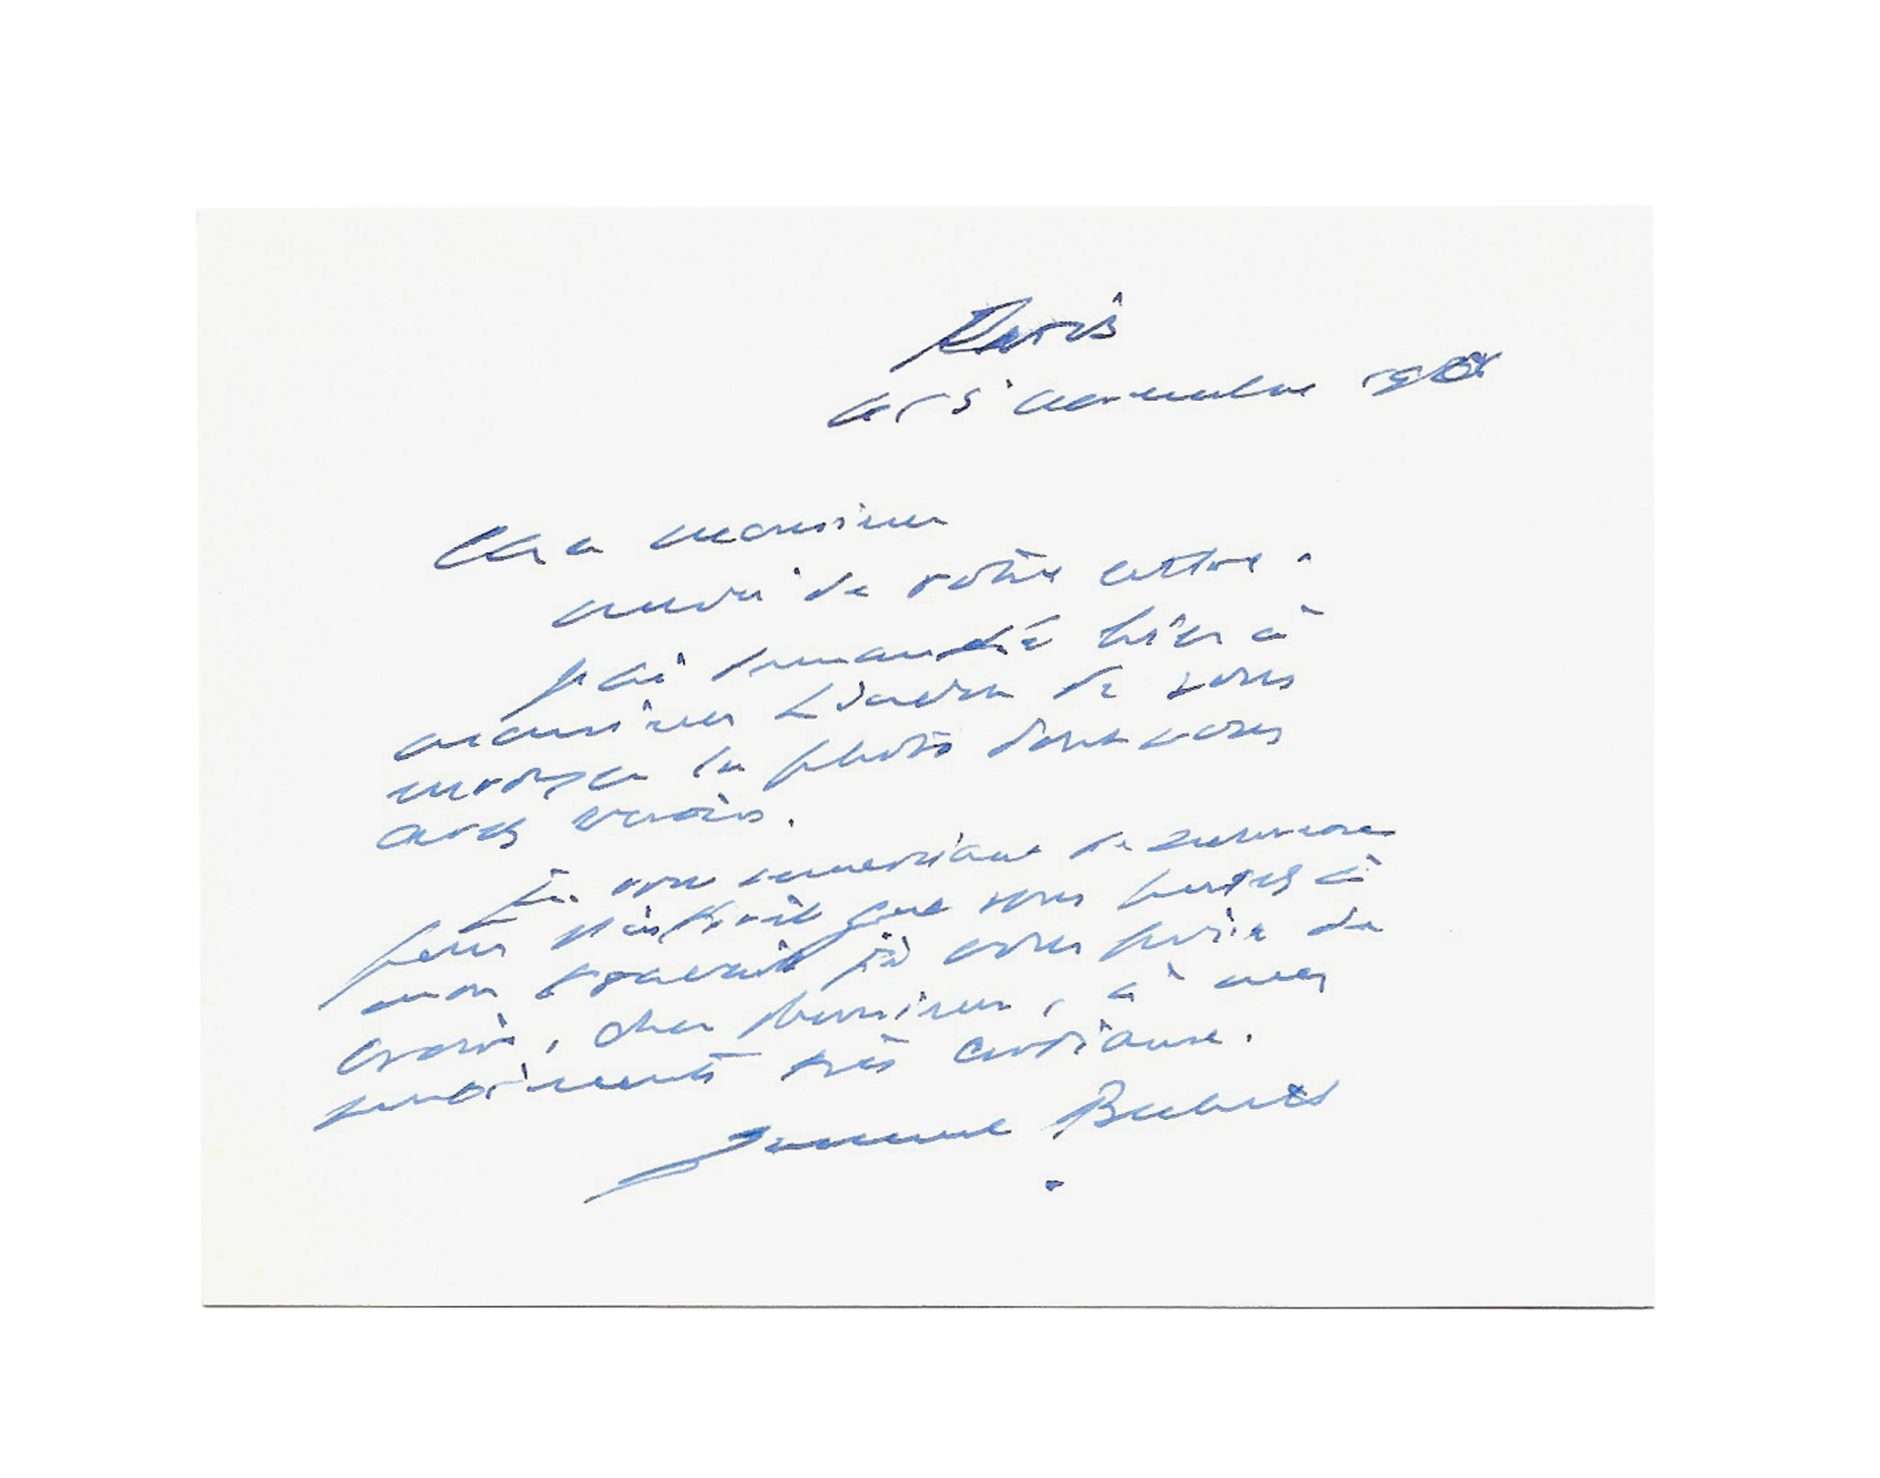 Paris
le 5 novembre
Cher monsieur
merci de votre lettre.
j'ai demandé hier à
monsieur Lindon de vous
envoyer la photo dont vous
avez besoin.
En vous remerciant de
pour l'intérêt que vous portez à
mon travail je vous prie de
croire, cher monsieur, à mes
sentiments très cordiaux.
Samuel Beckett